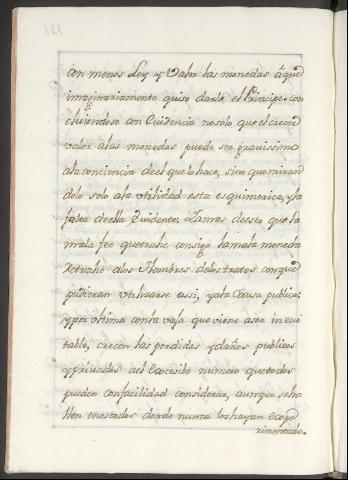 con menos Ley, y Valor las monedas á que
imaginariamente quiso darle el Principe. con
cluiendose con Evidencia no solo que el crecer
valor alas monedas puede ser gravissimo
ala conciencia deel que lo hace, sino que miran
dolo solo ala utilidad esta es quimerica, y la
falta deella Evidente. A mas deesto que la
mala fee que trahe consigo la mala moneda
retrahe alos Hombres delos tratos con que
pudieran utilizarse assi, y ala Causa publica;
y por ultimo con la vaja que viene a ser inevi
table, crecen las perdidas y daños publicos
y privados ael Excesibo numero que todos
pueden con facilidad considerar, aunque se ha
llen en estados donde nunca los hayan expe
rimentado.